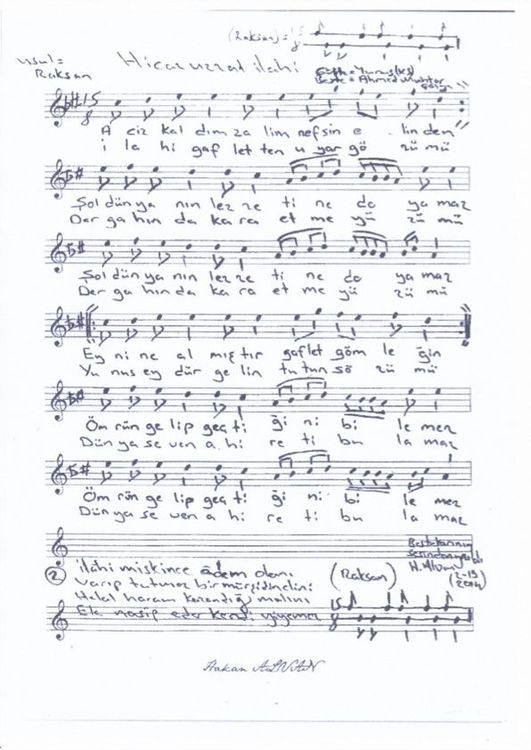 (Raksan)=
usul=
Raksan
Hicazuzzal ilahi
Güfte=Yunus(ks)
Beste=Ahmed Muhtar
15
8
A ciz kal dım za lim nefsin e linden
i la hi gaf let ten u yar gö zü mü
Şol dün ya nın lez ze ti ne do ya maz
Der ga hın da ka ra et me yü zü mü
Şol dün ya nın lez ze ti ne do ya maz
Der ga hın da ka ra et me yü zü mü
Ey ni ne al mıştır gaflet göm le ğin
Yu nus ey dür ge lin tu tun sö zü mü
Öm rün ge lip geç ti ği ni bi le mez
Dün ya se ven a hi re ti bu la maz
Öm rün ge lip geç ti ği ni bi le mez
Dün ya se ven a hi re ti bu la maz
Bestekarının
sesinden
H.Alvan
(2004)
2 ilahi miskince adem olanı
Varıp tutmaz bir mürşidin elini
Helal haram kazandığı malını
Ele nasip eder kendi yiyemez
(Raksan)
15
8
Hakan ALVAN